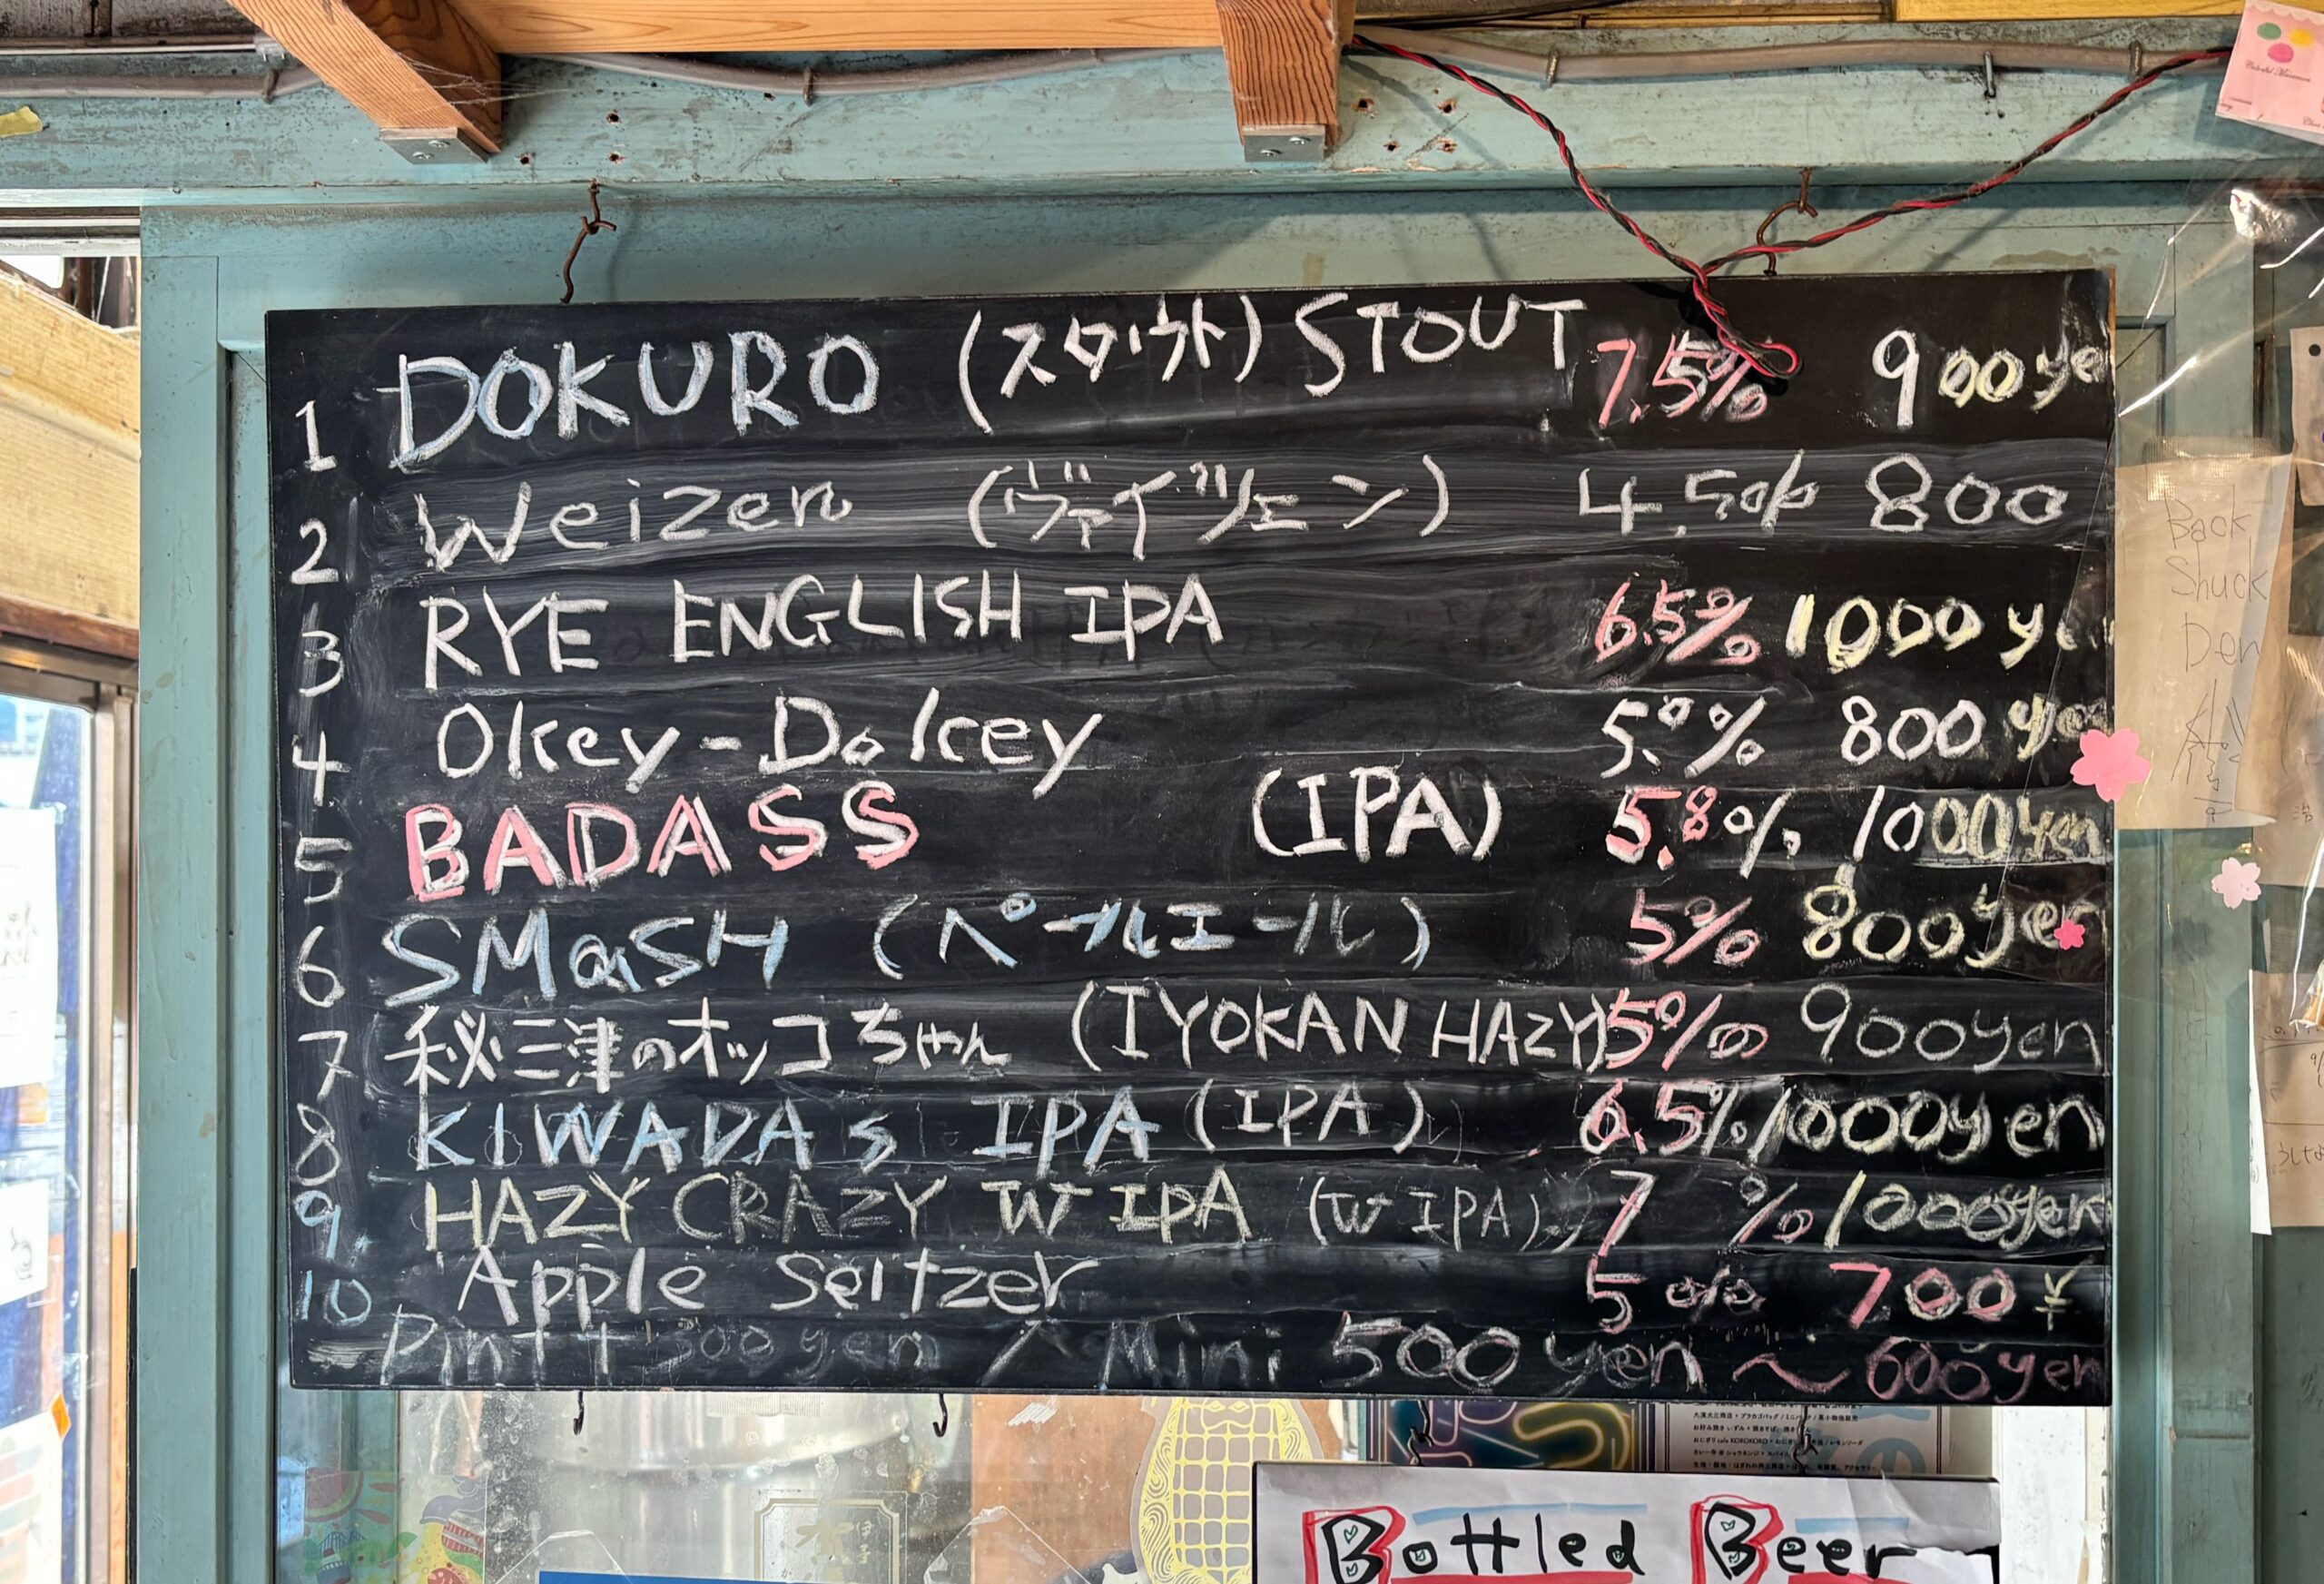 1 DOKURO (スタウト) STOUT 7.5% 900 ye
2 Weizen (ヴァイツェン) 4.5% 800
3 RYE ENGLISH IPA 6.5% 1000 ye
4 Okey-Dokey 5.0% 800 ye
5 BADASS (IPA) 5.8% 1000yen
6 SMaSH (ペールエール) 5% 800yen
7 秘三津のオッコちゃん (IYOKAN HAZY) 5% 900yen
8 KIWADAs IPA (IPA) 6.5% 1000yen
9 HAZY CRAZY W IPA (W IPA) 7% 1000yen
10 Apple Seltzer 5% 700¥
Pint + 300yen / Mini 500yen ~ 600yen
Back
Shuck
Den
Bottled Beer